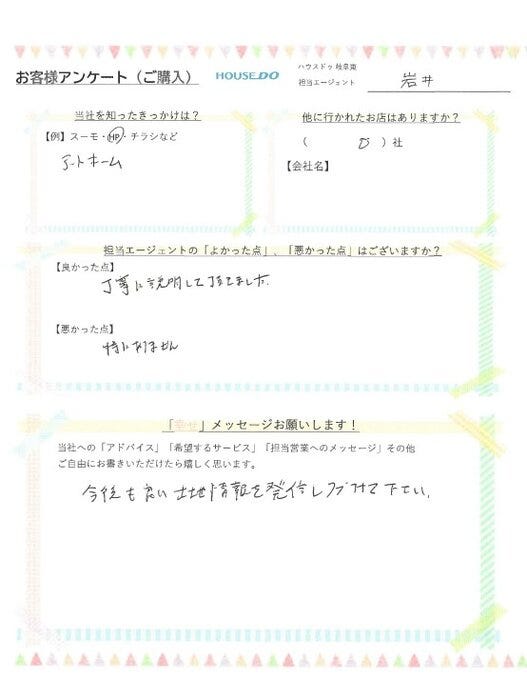 お客様アンケート（ご購入）
HOUSEDO
ハウスドゥ 岐阜南
担当エージェント
岩井
当社を知ったきっかけは？
【例】スーモ・HP・チラシなど
アットホーム
他に行かれたお店はありますか？
（ 0 ）社
【会社名】
担当エージェントの「よかった点」、「悪かった点」はございますか？
【良かった点】
丁寧に説明して頂きました。
【悪かった点】
特にありません
「幸せ」メッセージお願いします！
当社への「アドバイス」「希望するサービス」「担当営業へのメッセージ」その他
ご自由にお書きいただけたら嬉しく思います。
今後も良い土地情報を発信し
下さい。